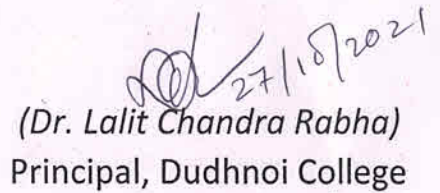 27/10/2021
(Dr. Lalit Chandra Rabha)
Principal, Dudhnoi College